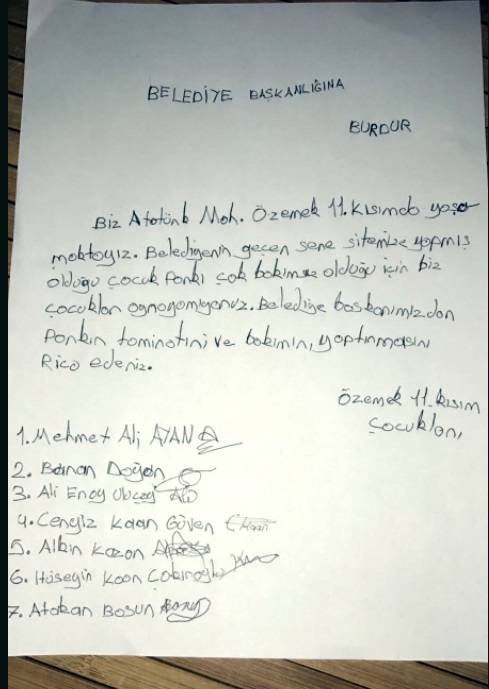 BELEDİYE BAŞKANLIĞINA
BURDUR
Biz Atatürk Mah. Özemek 11. Kısımda yaşa-
maktayız. Belediyenin geçen sene sitemize yapmış
olduğu çocuk Parkı çok bakımsız olduğu için biz
çocuklar oynayamıyoruz. Belediye başkanımızdan
Parkın tamiratını ve bakımını, yaptırmasını
Rica ederiz.
Özemek 11. kısım
Çocukları,
1. Mehmet Ali AYAN
2. Baran Doğan
3. Ali Eray
4. Cengiz Kaan Güven Kaan
5. Kazan
6. Hüseyin Kaan
7. Atakan Bosun